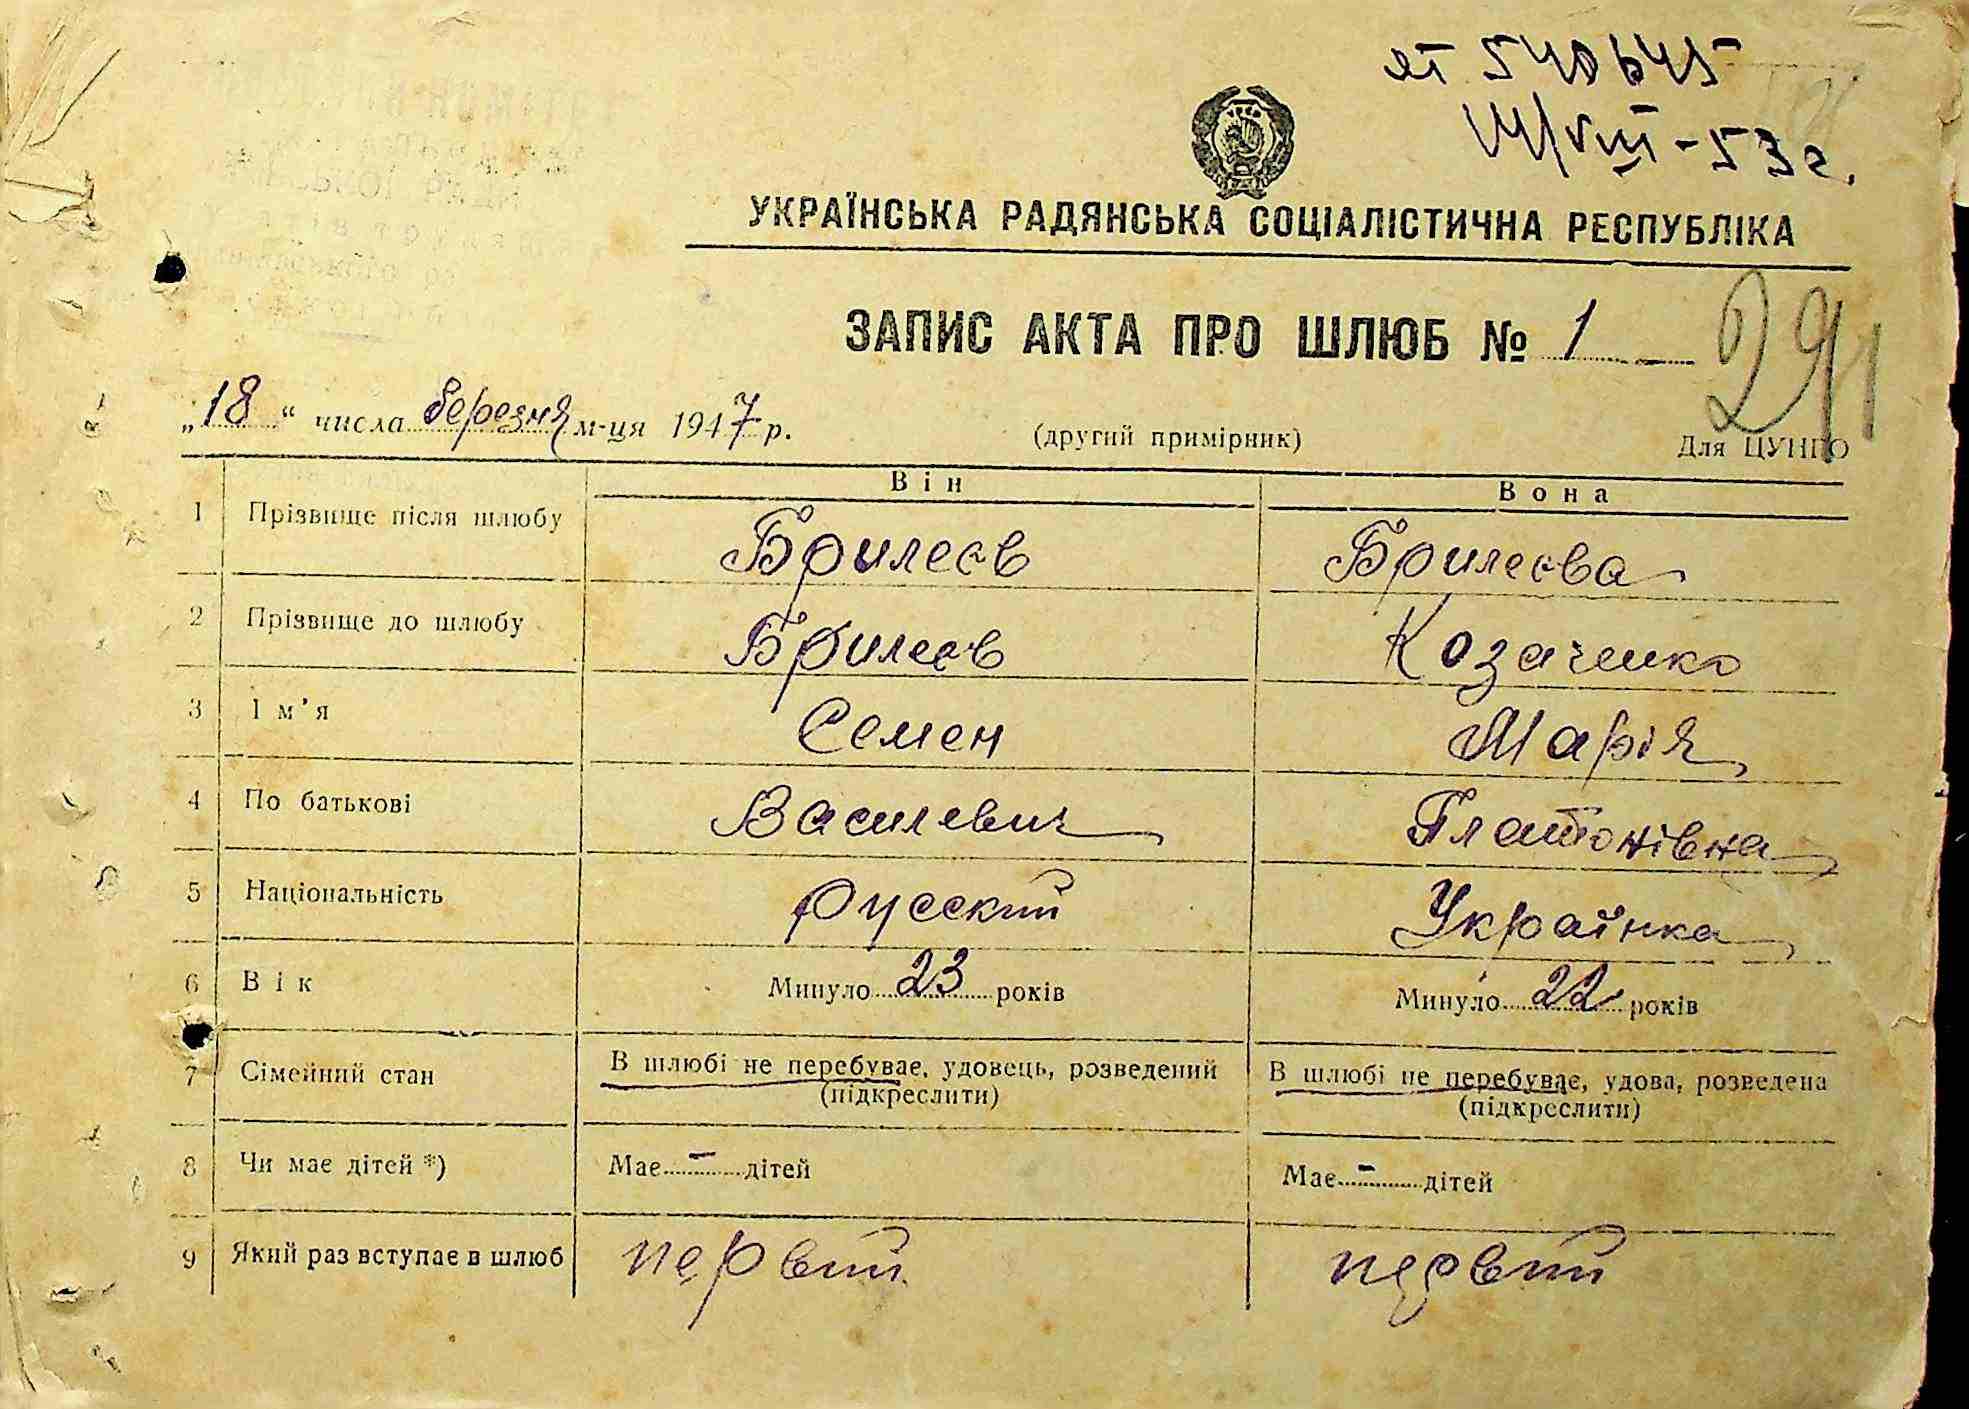 ЯТ 540645
14/VIII-53 г.
УКРАЇНСЬКА РАДЯНСЬКА СОЦІАЛІСТИЧНА РЕСПУБЛІКА
ЗАПИС АКТА ПРО ШЛЮБ № 1
291
„18“ числа березня м-ця 1947 р.
(другий примірник)
Для ЦУНГО
Він Вона
1 Прізвище після шлюбу Брилеєв Брилеєва
2 Прізвище до шлюбу Брилеєв Козаченко
3 Ім’я Семен Марія
4 По батькові Василевич Платонівна
5 Національність русский Українка
6 Вік Минуло 23 років Минуло 22 років
7 Сімейний стан В шлюбі не перебуває, удовець, розведений В шлюбі не перебуває, удова, розведена
(підкреслити) (підкреслити)
8 Чи має дітей *) Має - дітей Має - дітей
9 Який раз вступає в шлюб первий первий